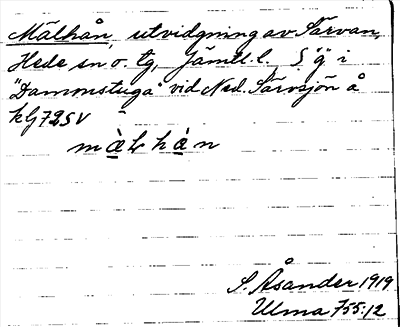 Mälhån, utvidgning av Särvan,
Hede sn o. tg, Jämtl.l. S "g" i
"Damonstuga" vid Ned. Särvsjön å
kbg72SV
màLhàn
S. Åsander 1919
Ulma 755:12